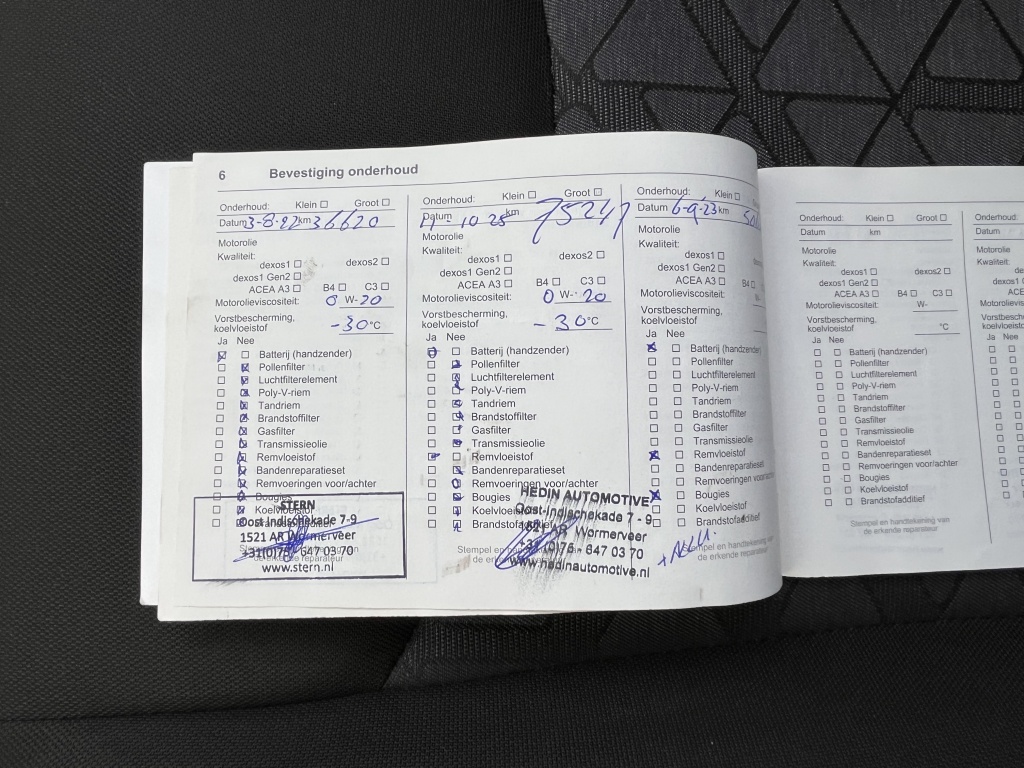 6 Bevestiging onderhoud
Onderhoud: Klein Groot
Datum 3-8-22 km 36620
Motorolie
Kwaliteit:
dexos1 dexos2
dexos1 Gen2
ACEA A3 B4 C3
Motorolieviscositeit: 0 W-20
Vorstbescherming,
koelvloeistof -30 °C
Ja Nee
Batterij (handzender)
Pollenfilter
Luchtfilterelement
Poly-V-riem
Tandriem
Brandstoffilter
Gasfilter
Transmissieolie
Remvloeistof
Bandenreparatieset
Remvoeringen voor/achter
Bougies
Koelvloeistof
STERN
Oost Indischekade 7-9
1521 AR Wormerveer
+31(0)75 - 647 03 70
www.stern.nl
de erkende reparateur
Onderhoud: Klein Groot
Datum km 75247
Motorolie
Kwaliteit:
dexos1 dexos2
dexos1 Gen2
ACEA A3 B4 C3
Motorolieviscositeit: 0 W- 20
Vorstbescherming,
koelvloeistof - 30 °C
Ja Nee
Batterij (handzender)
Pollenfilter
Luchtfilterelement
Poly-V-riem
Tandriem
Brandstoffilter
Gasfilter
Transmissieolie
Remvloeistof
Bandenreparatieset
Remvoeringen voor/achter
Bougies
Koelvloeistof
Brandstofadditief
HEDIN AUTOMOTIVE
Oost-Indischekade 7 - 9
1521 AR Wormerveer
+31 (0)75 - 647 03 70
www.hedinautomotive.nl
Stempel en
de erkende
Onderhoud: Klein
Datum 6-9-23 km
Motorolie
Kwaliteit:
dexos1
dexos1 Gen2
ACEA A3 B4
Motorolieviscositeit: W-
Vorstbescherming,
koelvloeistof
Ja Nee
Batterij (handzender)
Pollenfilter
Luchtfilterelement
Poly-V-riem
Tandriem
Brandstoffilter
Gasfilter
Transmissieolie
Remvloeistof
Bandenreparatieset
Remvoeringen voor/achter
Bougies
Koelvloeistof
Brandstofadditief
Stempel en handtekening van
de erkende reparateur
Onderhoud: Klein Groot
Datum km
Motorolie
Kwaliteit:
dexos1 dexos2
dexos1 Gen2
ACEA A3 B4 C3
Motorolieviscositeit: W-
Vorstbescherming,
koelvloeistof °C
Ja Nee
Batterij (handzender)
Pollenfilter
Luchtfilterelement
Poly-V-riem
Tandriem
Brandstoffilter
Gasfilter
Transmissieolie
Remvloeistof
Bandenreparatieset
Remvoeringen voor/achter
Bougies
Koelvloeistof
Brandstofadditief
Stempel en handtekening van
de erkende reparateur
Onderhoud:
Datum
Motorolie
Kwaliteit:
Motorolieviscositeit
Vorstbescherming,
koelvloeistof
Ja Nee